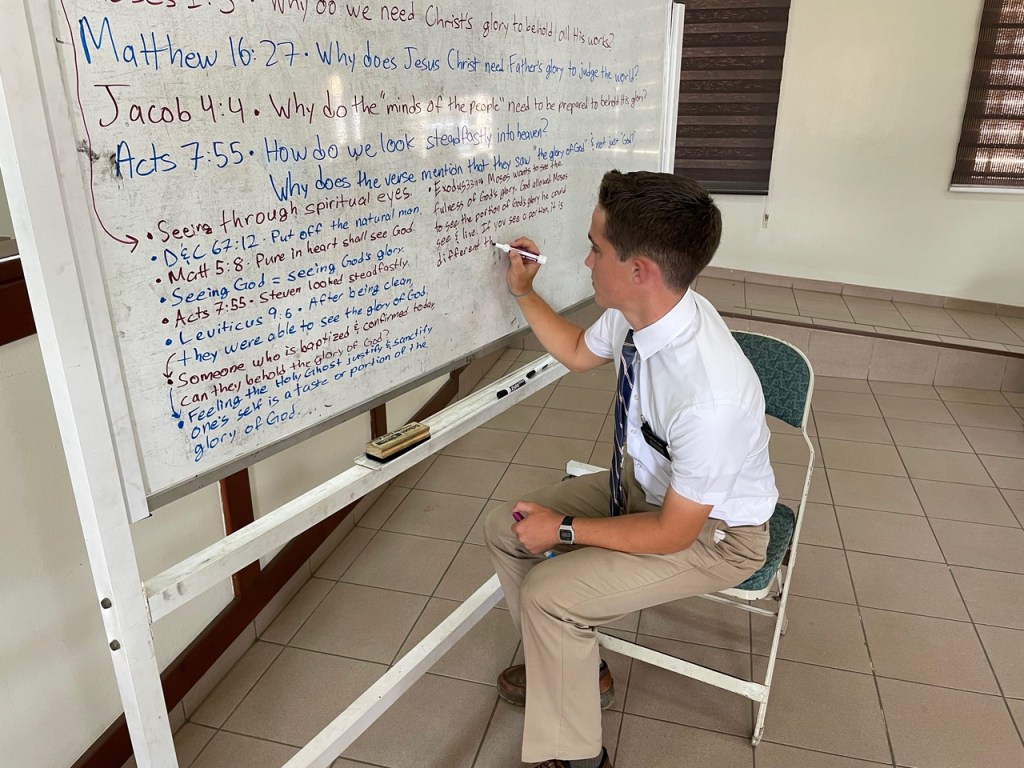 Moses 1:5 · Why do we need Christ's glory to behold all His works?
Matthew 16:27 · Why does Jesus Christ need Father's glory to judge the world?
Jacob 4:4 · Why do the "minds of the people" need to be prepared to behold His glory?
Acts 7:55 · How do we look steadfastly into heaven?
Why does the verse mention that they saw "the glory of God" & not just "God"?
• Seeing through spiritual eyes.
• D&C 67:12 · Put off the natural man.
• Matt 5:8 · Pure in heart shall see God.
• Seeing God = seeing God's glory.
• Acts 7:55 · Steven looked steadfastly.
• Leviticus 9:6 · After being clean,
they were able to see the glory of God.
• Someone who is baptized & confirmed today,
can they behold the glory of God?
• Feeling the Holy Ghost justify & sanctify
one's self is a taste or portion of the
glory of God.
• Exodus Moses wants to see the
fulness of God's glory. God allowed Moses
to see the portion of God's glory he could
see & live. If you see a portion, it is
different th